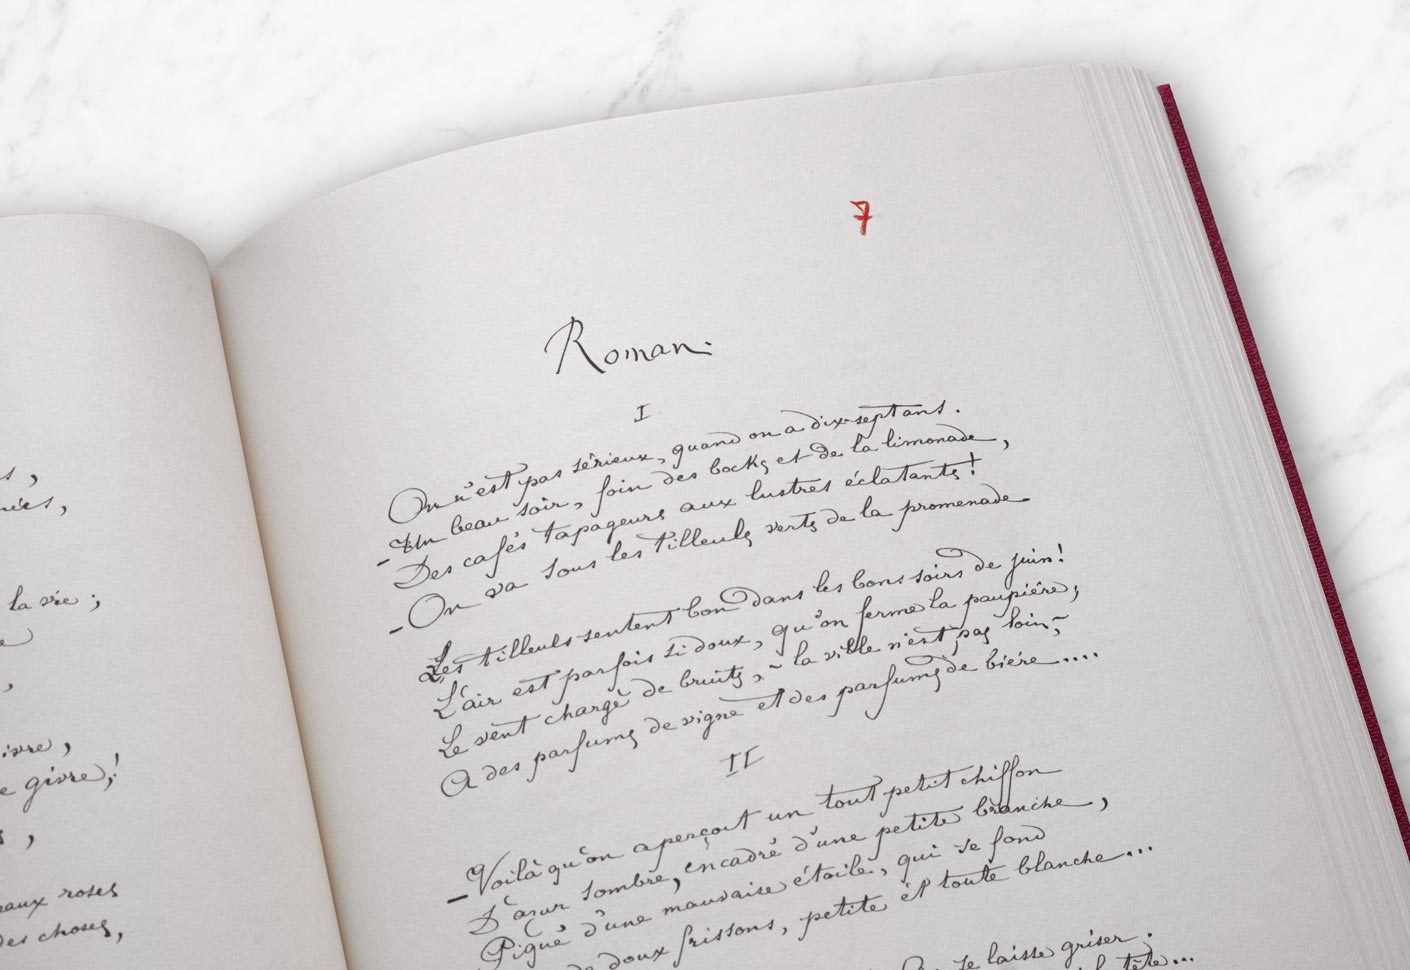 la vie ;
ivre,
e givre !
eaux roses
des choses,
7
Roman.
I
On n'est pas sérieux, quand on a dix-sept ans.
- Un beau soir, foin des bocks et de la limonade,
Des cafés tapageurs aux lustres éclatants !
- On va sous les tilleuls verts de la promenade
Les tilleuls sentent bon dans les bons soirs de juin !
L'air est parfois si doux, qu'on ferme la paupière ;
Le vent chargé de bruits, - la ville n'est pas loin, -
A des parfums de vigne et des parfums de bière....
II
- Voilà qu'on aperçoit un tout petit chiffon
D'azur sombre, encadré d'une petite branche,
Piqué d'une mauvaise étoile, qui se fond
de doux frissons, petite et toute blanche...
se laisse griser.
tête...